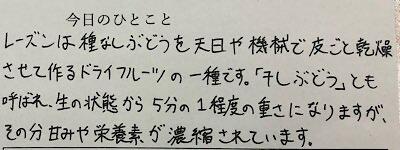 今日のひとこと
レーズンは種なしぶどうを天日や機械で皮ごと乾燥
させて作るドライフルーツの一種です。「干しぶどう」とも
呼ばれ、生の状態から5分の1程度の重さになりますが、
その分甘みや栄養素が濃縮されています。